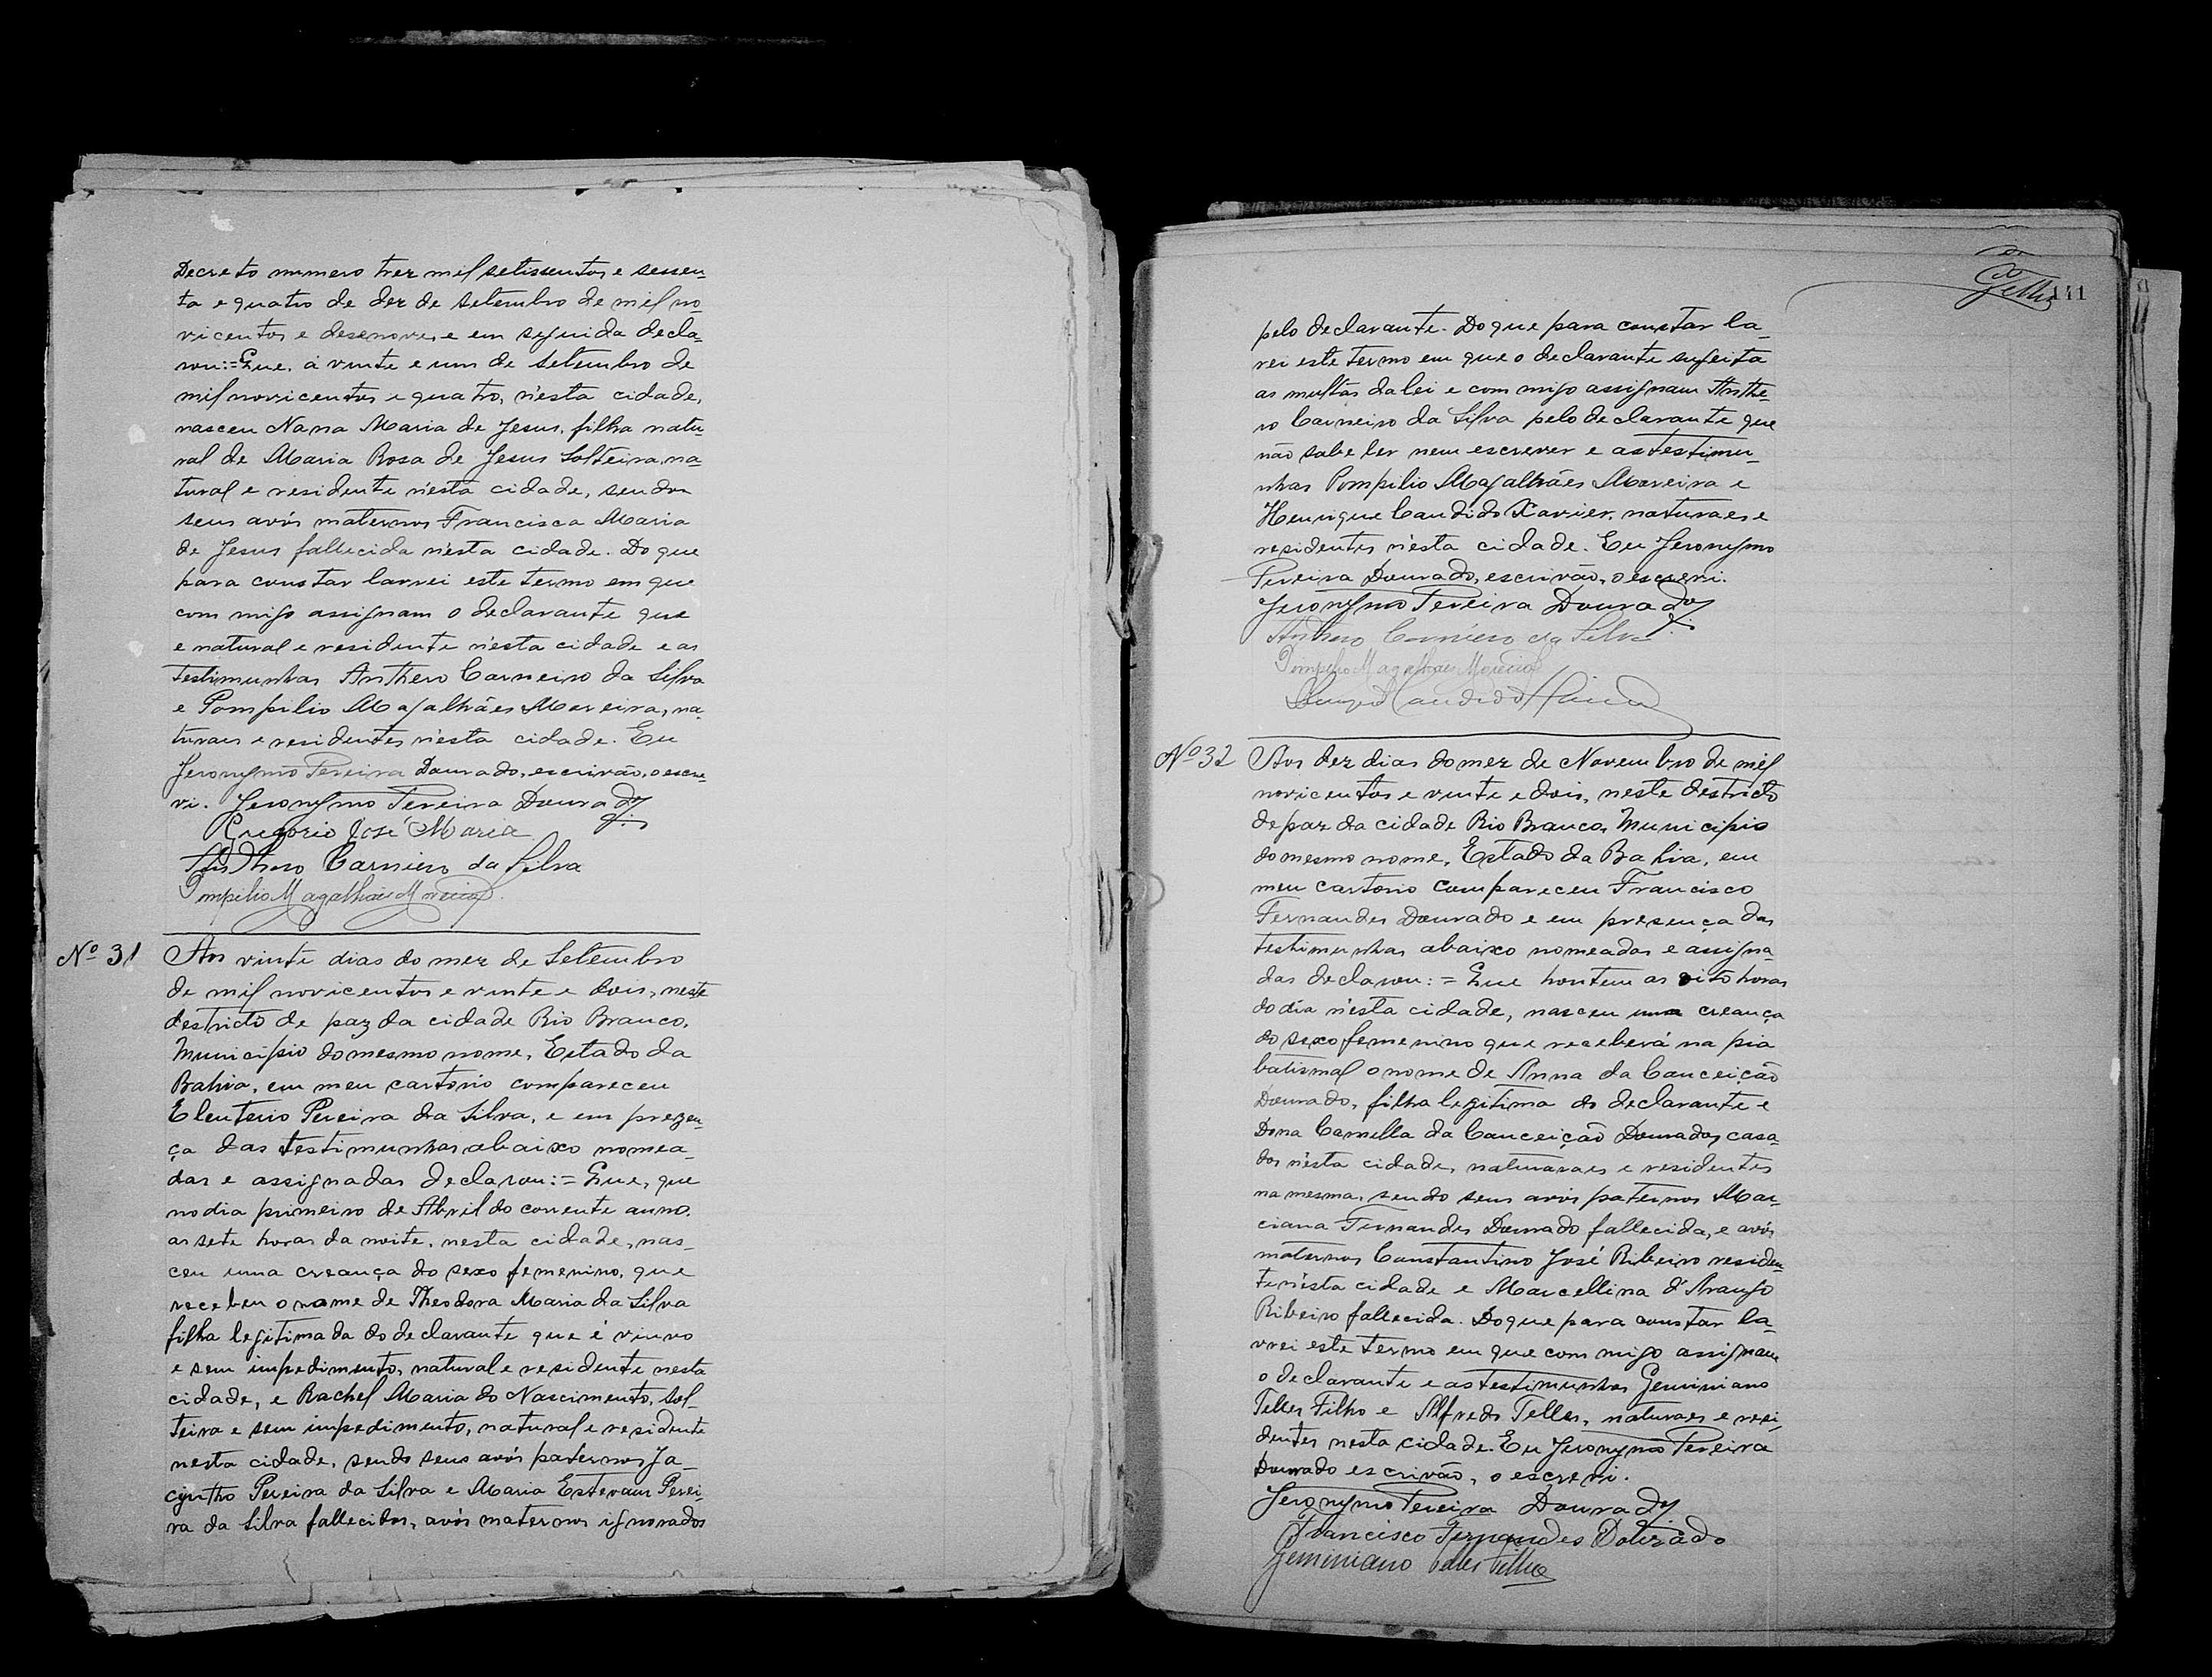 Decreto numero trez mil setissentos e sessen_
ta e quatro de dez de Setembro de mil no_
vicentos e desenove, e em seguida decla_
rou:=Que, á vinte e um de Setembro de
mil novicentos e quatro, n'esta cidade,
nasceu Nana Maria de Jesus, filha natu_
ral de Maria Rosa de Jesus Solteira, na_
tural e residente n'esta cidade, sendo
seus avós maternos Francisca Maria
de Jesus fallecida n'esta cidade. Do que
para constar lavrei este termo em que
com migo assignam o declarante que
e natural e residente n'esta cidade e as
testimunhas Anthero Carneiro da Silva
e Pompilio Magalhães Moreira, na_
turaes e residentes n'esta cidade. Eu
Jeronymo Pereira Dourado, escrivão, o escre_
vi. Jeronymo Pereira Dourado
Gregorio José Maria
Anthero Carniero da Silva
Pimpilio Magalhães Moreira
Nº 31 Aos vinte dias do mez de Setembro
de mil novicentos e vinte e dois, neste
destricto de paz da cidade Rio Branco,
Municipio do mesmo nome, Estado da
Bahia, em meu cartorio compareceu
Eleuterio Pereira da Silva, e em prezen_
ça das testimunhas abaixo nomea_
das e assignadas declarou:= Que, que
no dia primeiro de Abril do corrente anno,
as sete horas da noite, nesta cidade, nas_
ceu uma creança do sexo femenino, que
recebeu o nome de Theodora Maria da Silva
filha legitimada do declarante que é viuvo
e sem impedimento, natural e residente nesta
cidade, e Rachel Maria do Nascimento, sol_
teira e sem impedimento, natural e residente
nesta cidade, sendo seus avós paternos Ja_
cyntho Pereira da Silva e Maria Estevam Perei_
ra da Silva fallecidos, avós maternos ignorados
111
pelo declarante. Do que para constar la_
vrei este termo em que o declarante sugeita
as multas da lei e com migo assignam Anthe_
ro Carneiro da Silva pelo declarante que
não sabe ler nem escrever e as testimu_
nhas Pompilio Magalhães Moreira e
Henrique Candido Xavier, naturaes e
residentes n'esta cidade. Eu Jeronymo
Pereira Dourado, escrivão, o escrevi.
Jeronymo Pereira Dourado
Anthero Carniero da Silva
Pimpilio Magalhães Moreira
Candido
Nº 32 Aos dez dias do mez de Novembro de mil
novicentos e vinte e dois, neste destricto
de paz da cidade Rio Branco, Municipio
do mesmo nome, Estado da Bahia, em
meu cartorio compareceu Francisco
Fernandes Dourado e em presença das
testimunhas abaixo nomeadas e assigna_
das declarou:= Que hontem as oito horas
do dia n'esta cidade, nasceu uma creança
do sexo femenino que receberá na pia
batismal o nome de Anna da Conceição
Dourado, filha legitima do declarante e
Dona Camella da Conceição Dourado, casa_
dos n'esta cidade, naturaraes e residentes
na mesma, sendo seus avós paternos Mar_
ciana Fernandes Dourado fallecida, e avós
maternos Constantino José Ribeiro residen_
te n'esta cidade e Marcellina d'Araujo
Ribeiro fallecida. Do que para constar la_
vrei este termo em que com migo assignam
o declarante e as testimunhas Geminiano
Telles Filho e Alfredo Telles, naturaes e resi_
dentes nesta cidade. Eu Jeronymo Pereira
Dourado escrivão, o escrevi.
Jeronymo Pereira Dourado
Francisco Fernandes Dolirado
Geminiano Telles Filho